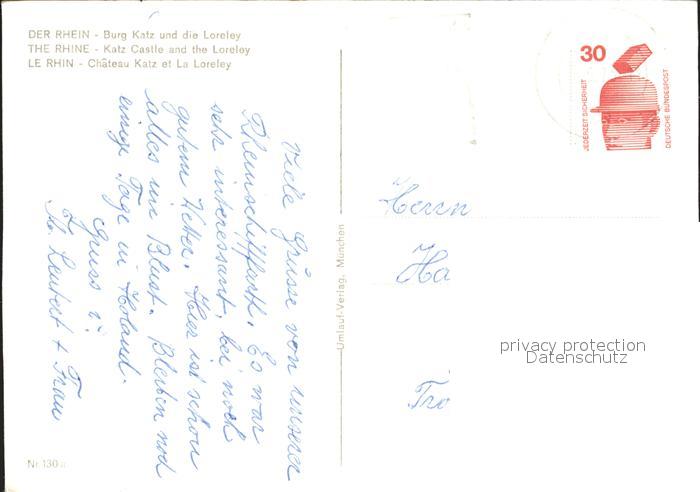 DER RHEIN - Burg Katz und die Loreley
THE RHINE - Katz Castle and the Loreley
LE RHIN - Château Katz et La Loreley
Viele Grüsse von unserer
Rheinschifffarth. Es war
sehr interessant, bei noch
gutem Wetter. Hier ist schon
alles in Blust. Bleiben noch
einige Tage in Holand.
Gruss
+ Frau
Umlauf-Verlag, München
Nr. 130
30
JEDERZEIT SICHERHEIT
DEUTSCHE BUNDESPOST
Herrn
Ha
Tro
privacy protection
Datenschutz